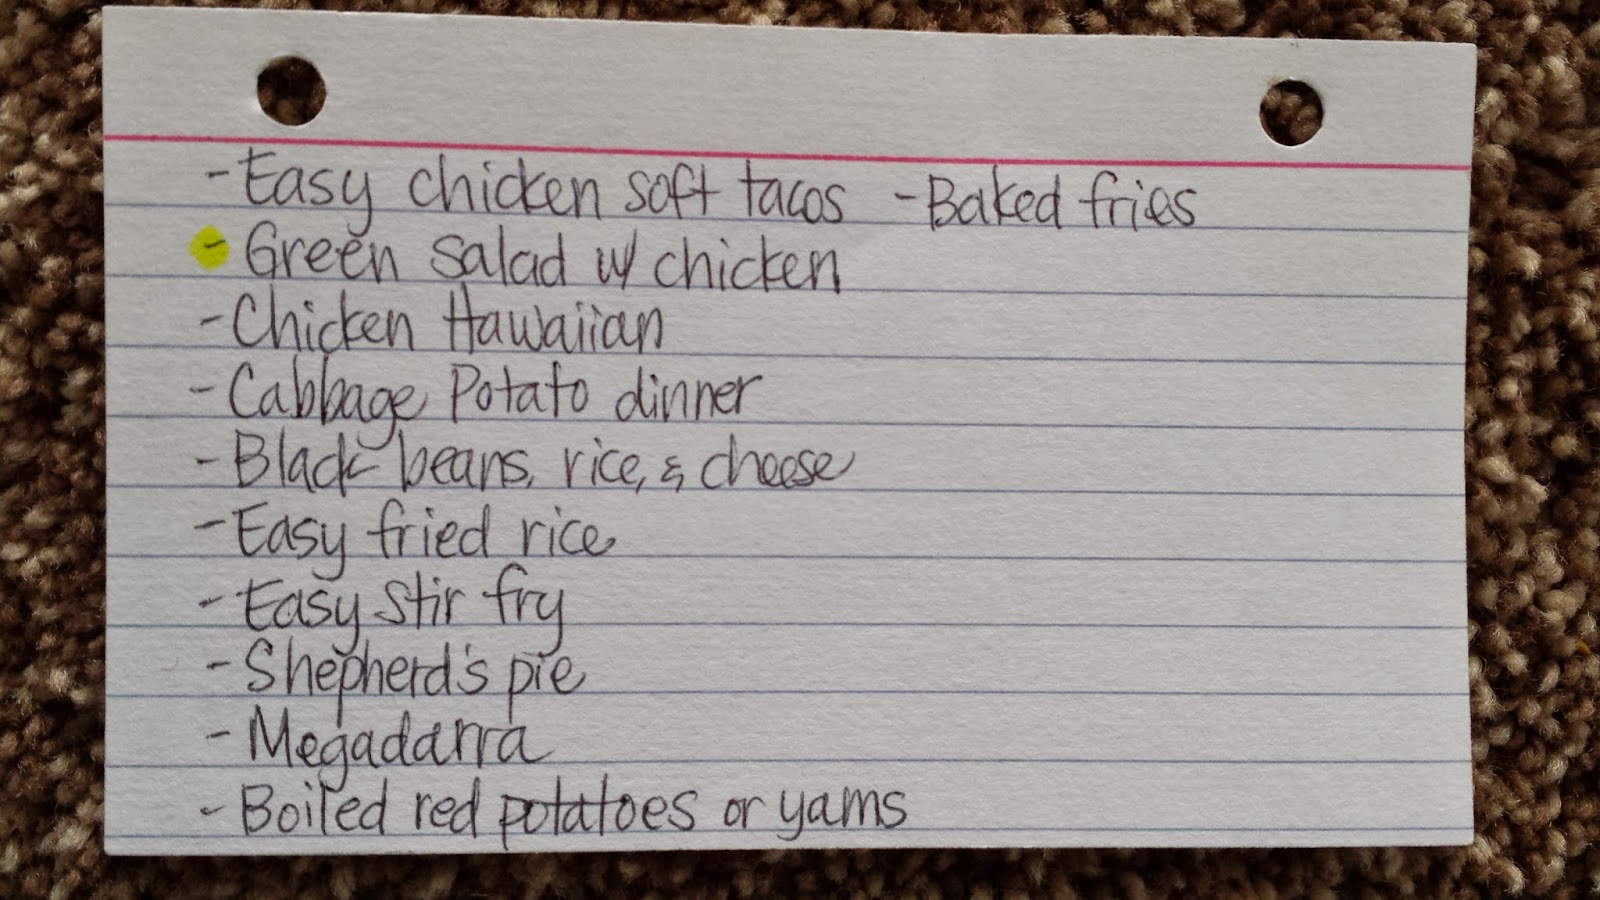 - Easy chicken soft tacos - Baked fries
- Green salad w/ chicken
- Chicken Hawaiian
- Cabbage Potato dinner
- Black beans, rice, & cheese
- Easy fried rice
- Easy stir fry
- Shepherd's pie
- Megadarra
- Boiled red potatoes or yams